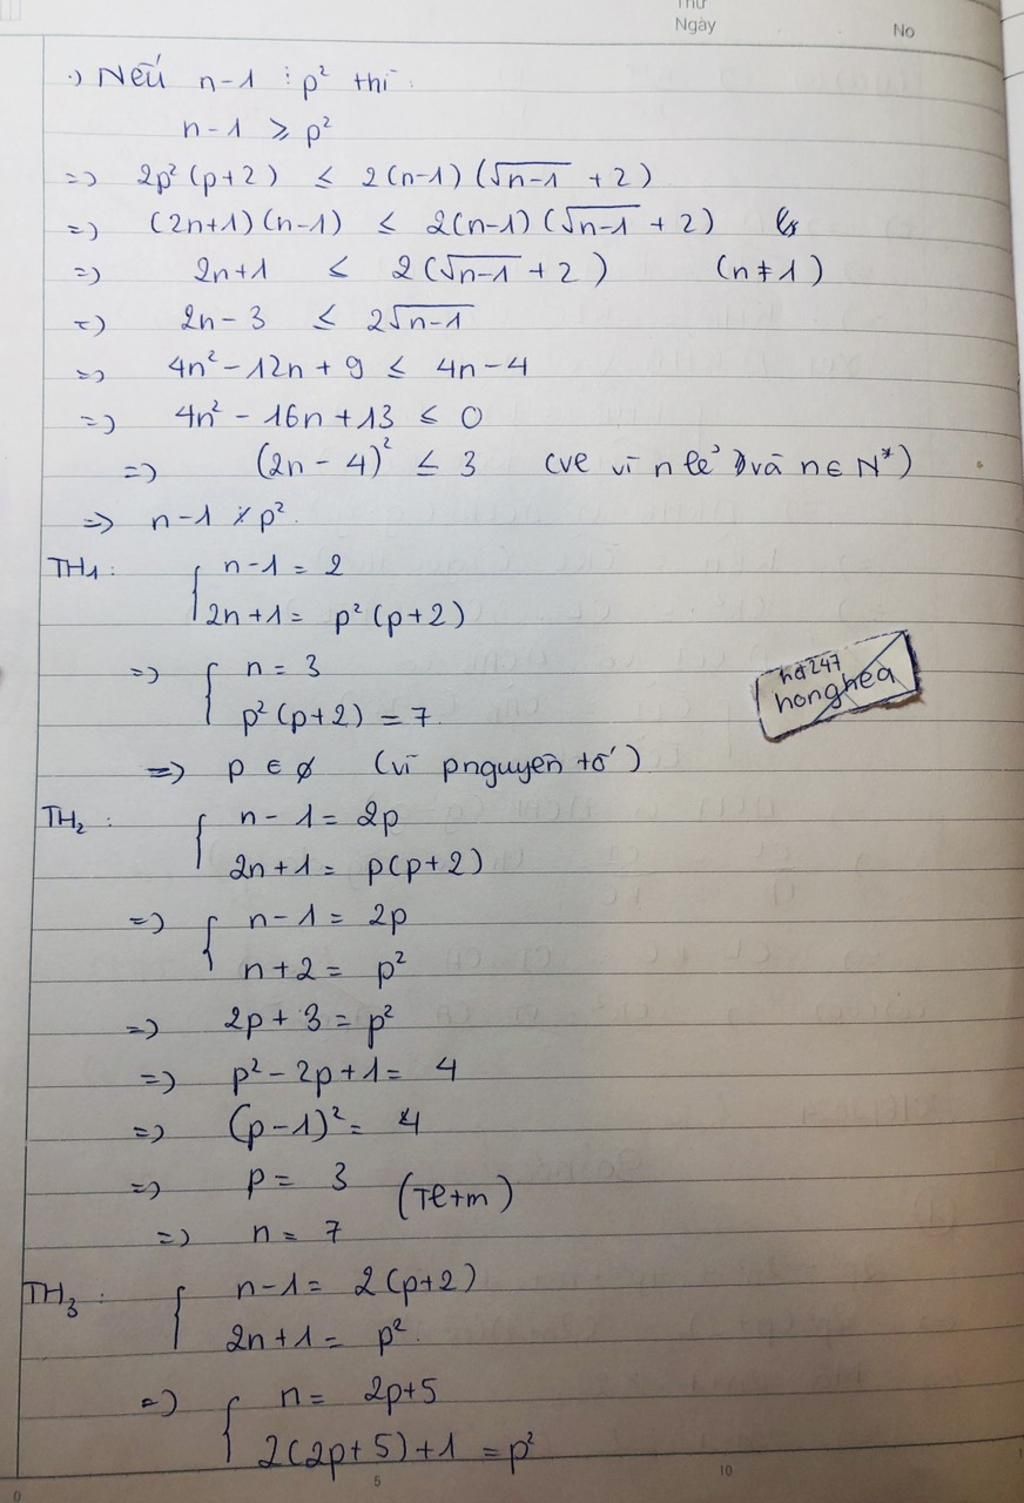 Thứ
Ngày
No
·) Nếu n-1 ⋮ p² thì:
n-1 ⩾ p²
=> 2p²(p+2) ≤ 2(n-1)(√(n-1) + 2)
=> (2n+1)(n-1) ≤ 2(n-1)(√(n-1) + 2)
=> 2n+1 ≤ 2(√(n-1) + 2) (n≠1)
=> 2n-3 ≤ 2√(n-1)
=> 4n² - 12n + 9 ≤ 4n-4
=> 4n² - 16n + 13 ≤ 0
=> (2n-4)² ≤ 3 (vl vì n lẻ và n∈N*)
=> n-1 ⋮̸ p².
TH1: { n-1 = 2
2n+1 = p²(p+2)
=> { n = 3
p²(p+2) = 7.
=> p ∈ ∅ (vì p nguyên tố)
hd247
honghea
TH2: { n-1 = 2p
2n+1 = p(p+2)
=> { n-1 = 2p
n+2 = p²
=> 2p+3 = p²
=> p²-2p+1 = 4
=> (p-1)² = 4
=> p = 3 (Tl+m)
=> n = 7
TH3: { n-1 = 2(p+2)
2n+1 = p².
=> { n = 2p+5
2(2p+5)+1 = p²
0
5
10